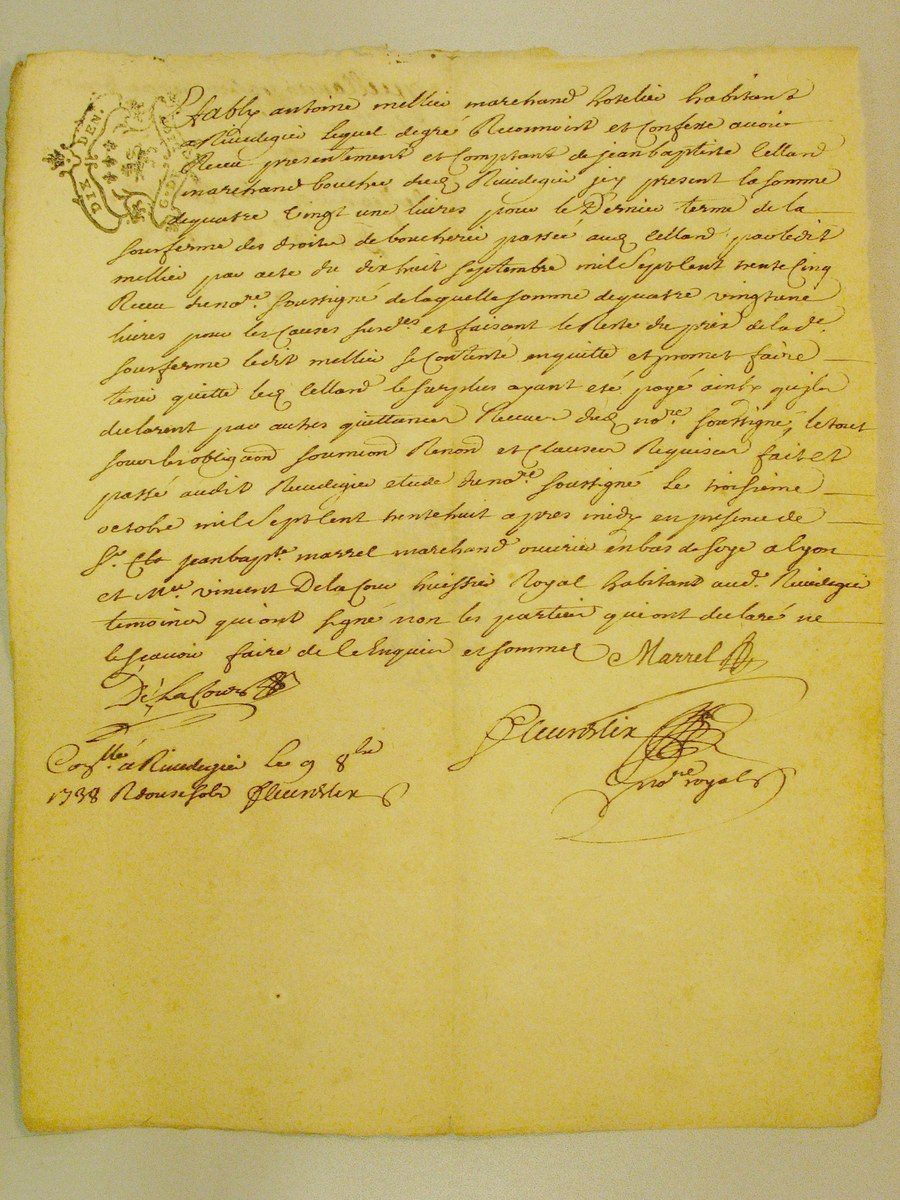 DIX DEN.
Establi antoine mellier marchand hotelier habitant
a Rivedegier lequel degré Reconnoist et Confesse avoir
Receu presentement et Comptant de jean baptiste Cellard
marchand boucher dud Rivedegier jcy present la somme
de quatre vingt une livres pour le Dernier terme de la
sousferme des droits de boucherie passee aud Cellard par ledit
mellier par acte du dix huit septembre mil sept Cent trente Cinq
Receu du no.re soussigné de laquelle somme de quatre vingt une
livres pour les Causes susd.es et faisant le Reste du prix de lad.e
sousferme ledit mellier se Contente en quitte et promet faire
tenir quitte led Cellard le surplus ayant eté payé ainsy quils
declarent par autres quittances Receues dud no.re soussigné, le tout
sous les obligaon soumion Renond et Clauses Requises fait et
passé audit Rivedegier etude du no.re soussigné Le troisieme
octobre mil sept Cent trente huit apres midy en presence de
Sr jean bap.te marrel marchand ouvrier en bas de soye a lyon
et M.re vincent De la Cour huissier Royal habitant aud. Rivedegier
temoins qui ont signé non les parties qui ont declaré ne
le scavoir faire de Ce Enquis et sommes Marrel
De La Cour
Fleurdelix
no.re royal
Con.llé a Rivedegier Le 9 8.bre
1738 R douse sols Fleurdelix